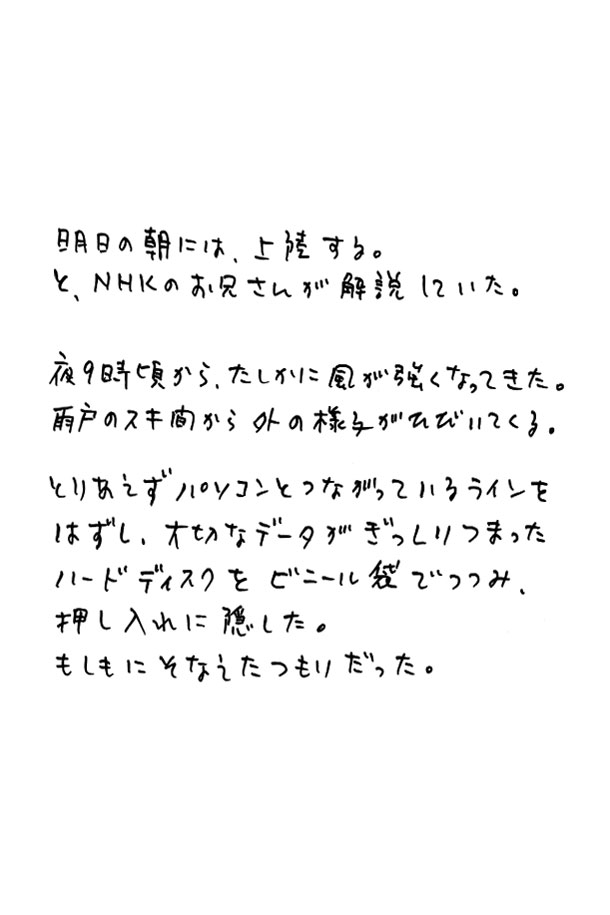 明日の朝には、上陸する。
と、NHKのお兄さんが解説していた。
夜9時頃から、たしかに風が強くなってきた。
雨戸のスキ間から外の様子がひびいてくる。
とりあえずパソコンとつながっているラインを
はずし、大切なデータがぎっしりつまった
ハードディスクをビニール袋でつつみ、
押し入れに隠した。
もしもにそなえたつもりだった。